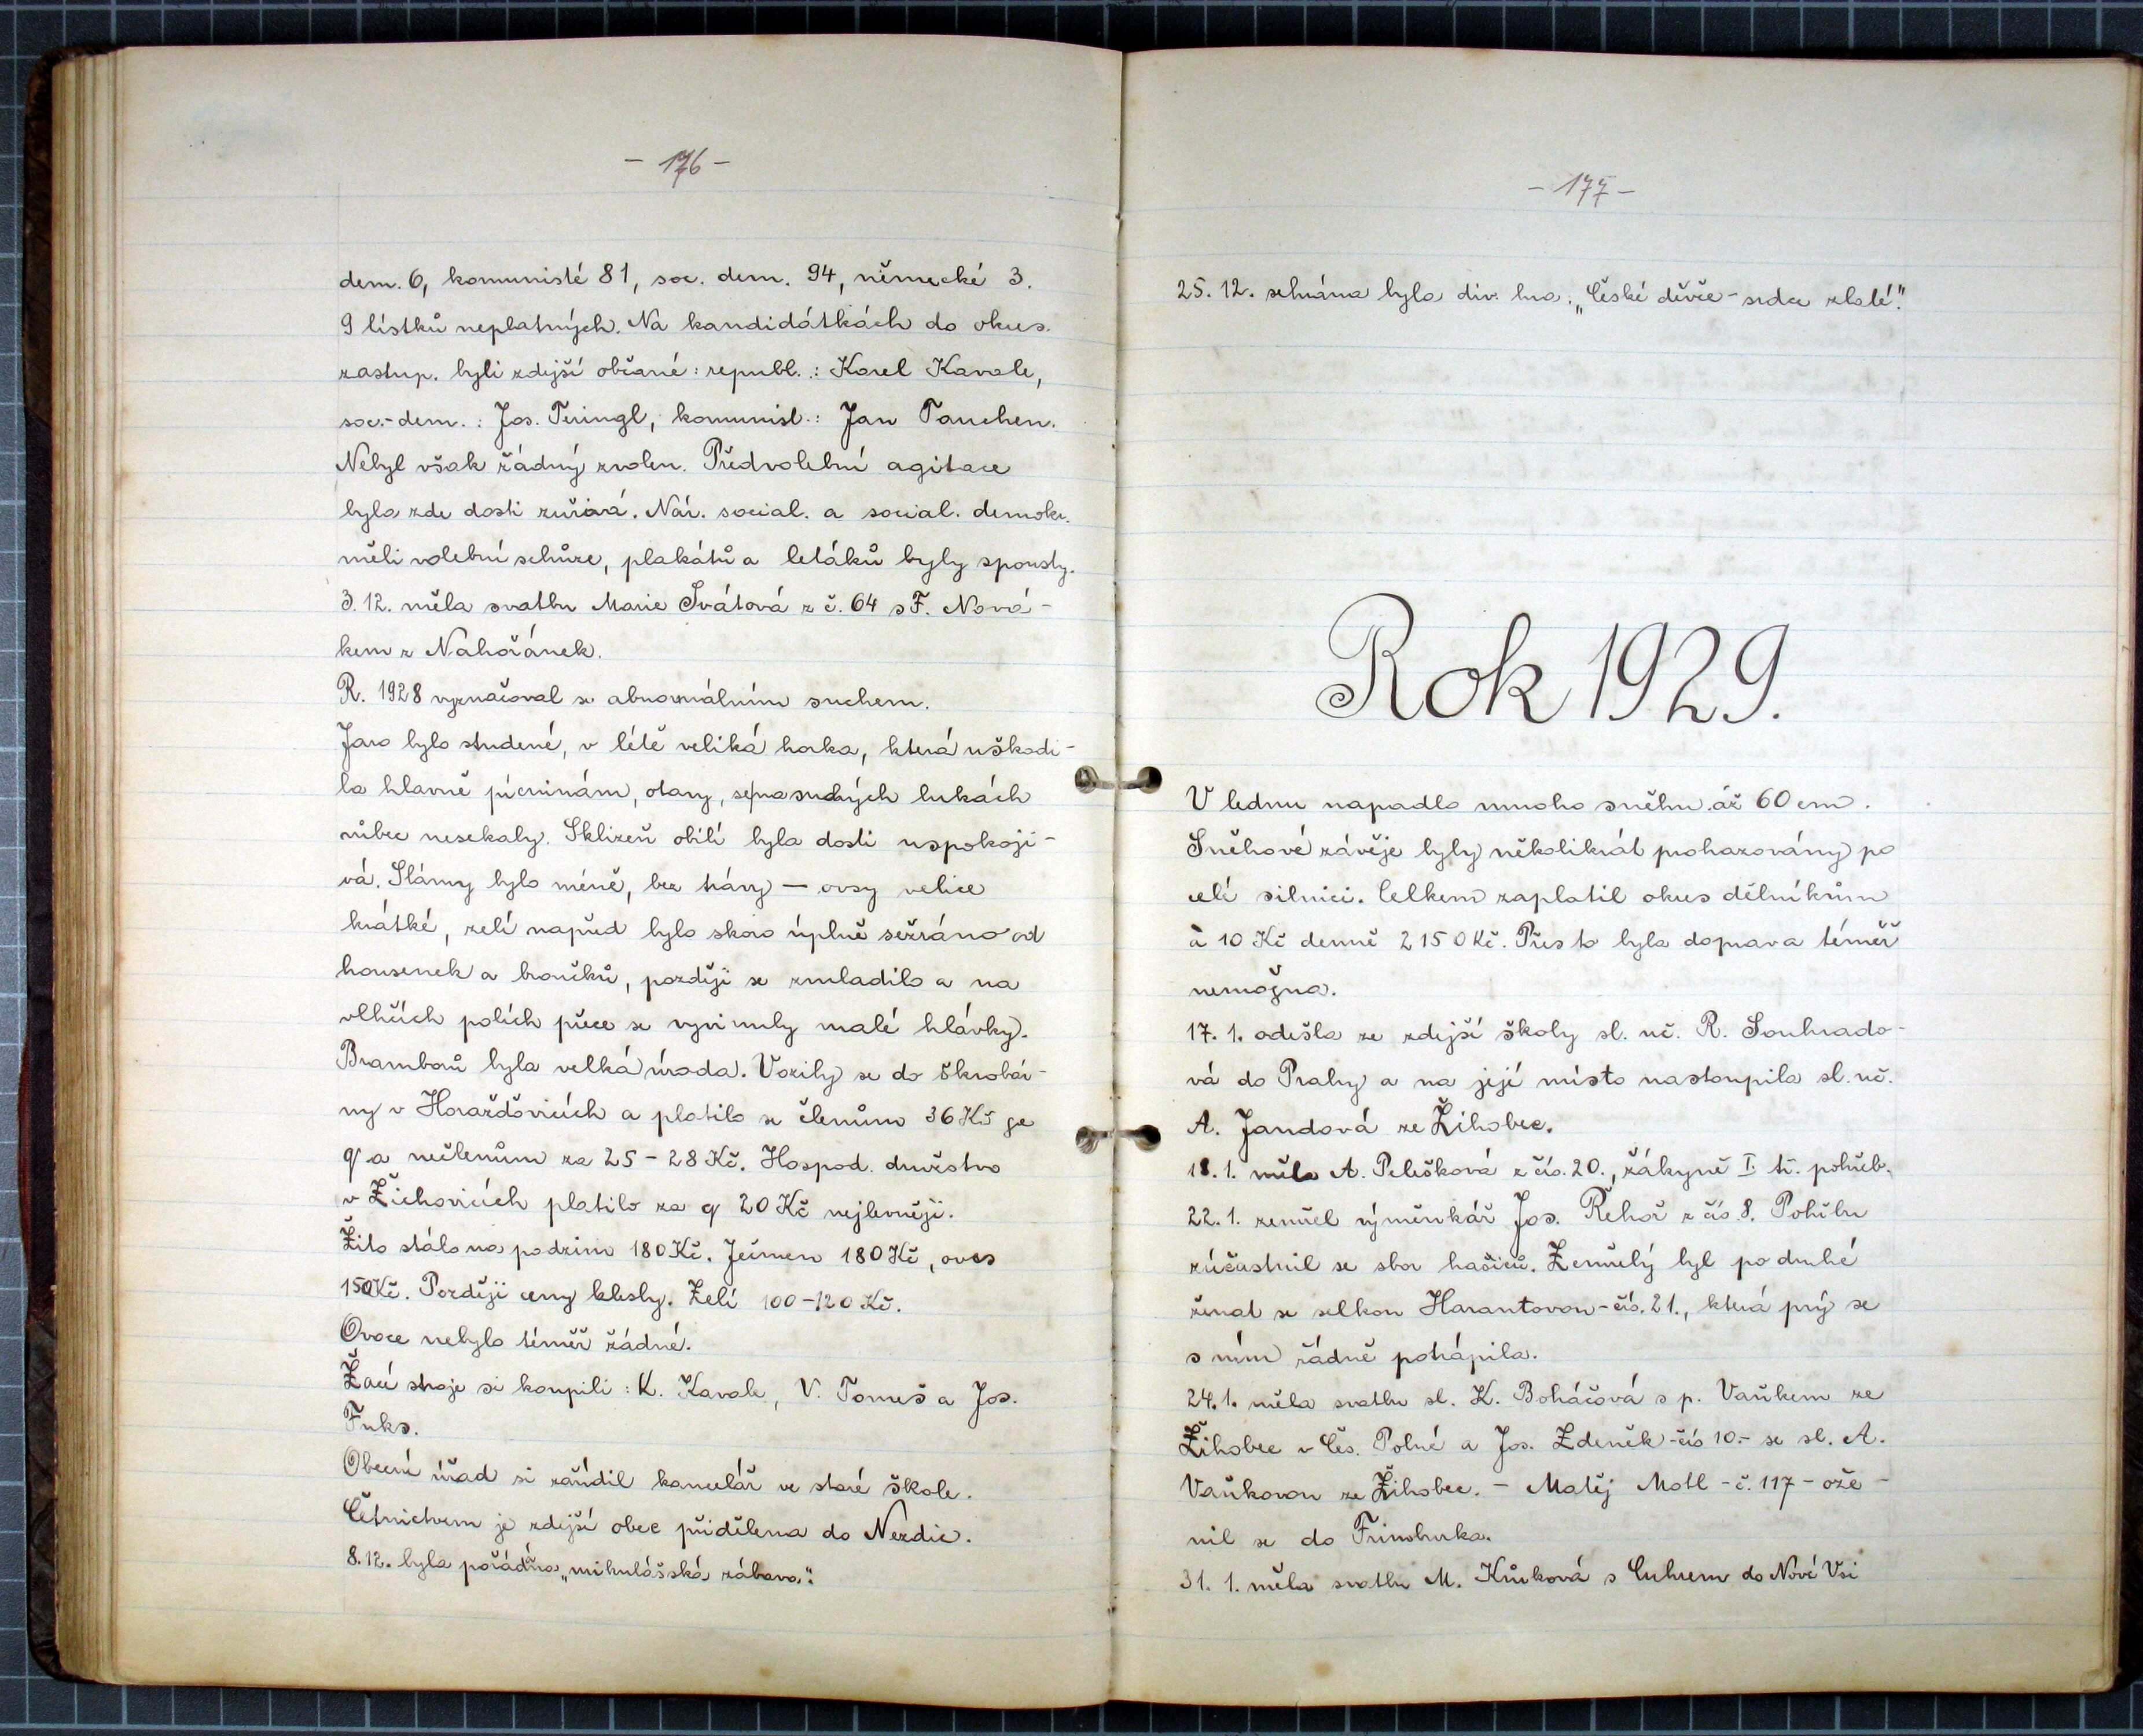 - 176 -
dem. 6, komunisté 81, soc. dem. 94, německé 3.
9 lístků neplatných. Na kandidátkách do okres.
zastup. byli zdejší občané: republ.: Karel Kavale,
soc.-dem.: Jos. Turingl, komunist.: Jan Tauchen.
Nebyl však žádný zvolen. Předvolební agitace
byla zde dosti zuřivá. Nár. social. a social. demokr.
měli volební schůze, plakátů a letáků byly spousty.
3. 12. měla svatbu Marie Svátová z č. 64 s F. Nová-
kem z Nahořánek.
R. 1928 vyznačoval se abnormálním suchem.
Jaro bylo studené, v létě veliká horka, která uškodi-
la hlavně pícninám, otavy, se na suchých lukách
vůbec nesekaly. Sklizeň obilí byla dosti uspokoji-
vá. Slámy bylo méně, bez trávy — ovsy velice
krátké, zelí napřed bylo skoro úplně sežráno od
housenek a broučků, později se zmladilo a na
vlhčích polích přece se vyvinuly malé hlávky.
Bramborů byla velká úroda. Vozily se do škrobár-
ny v Horažďovicích a platilo se členům 36 Kč za
q a nečlenům za 25 - 28 Kč. Hospod. družstvo
v Žichovicích platilo za q 20 Kč nejlevněji.
Žito stálo na podzim 180 Kč. Ječmen 180 Kč, oves
150 Kč. Později ceny klesly. Zelí 100-120 Kč.
Ovoce nebylo téměř žádné.
Žací stroje si koupili: K. Kavale, V. Tomeš a Jos.
Fuks.
Obecní úřad si zařídil kancelář ve staré škole.
Četnictvem je zdejší obec přidělena do Nezdic.
8. 12. byla pořádána „mikulášská zábava".
- 177 -
25. 12. sehrána byla div. hra: „České děvče - srdce zlaté."
Rok 1929.
V lednu napadlo mnoho sněhu až 60 cm.
Sněhové závěje byly několikrát prohazovány po
celé silnici. Celkem zaplatil okres dělníkům
à 10 Kč denně 2150 Kč. Přes to byla doprava téměř
nemožna.
17. 1. odešla ze zdejší školy sl. uč. R. Souhrado-
vá do Prahy a na její místo nastoupila sl. uč.
A. Jandová ze Žihobec.
18. 1. měla A. Pelešková z čís. 20., žákyně I. tř. pohřeb.
22. 1. zemřel výměnkář Jos. Řehoř z čís. 8. Pohřbu
zúčastnil se sbor hasičů. Zemřelý byl po druhé
ženat se selkou Harantovou - čís. 21., která prý se
s ním řádně potrápila.
24. 1. měla svatbu sl. K. Boháčová s p. Vaňkem ze
Žihobec v Čes. Polné a Jos. Zdeněk - čís 10. - se sl. A.
Vaňkovou ze Žihobec. - Matěj Motl - č. 117 - ože-
nil se do Frimburka.
31. 1. měla svatbu M. Kůrková s Cuhrem do Nové Vsi